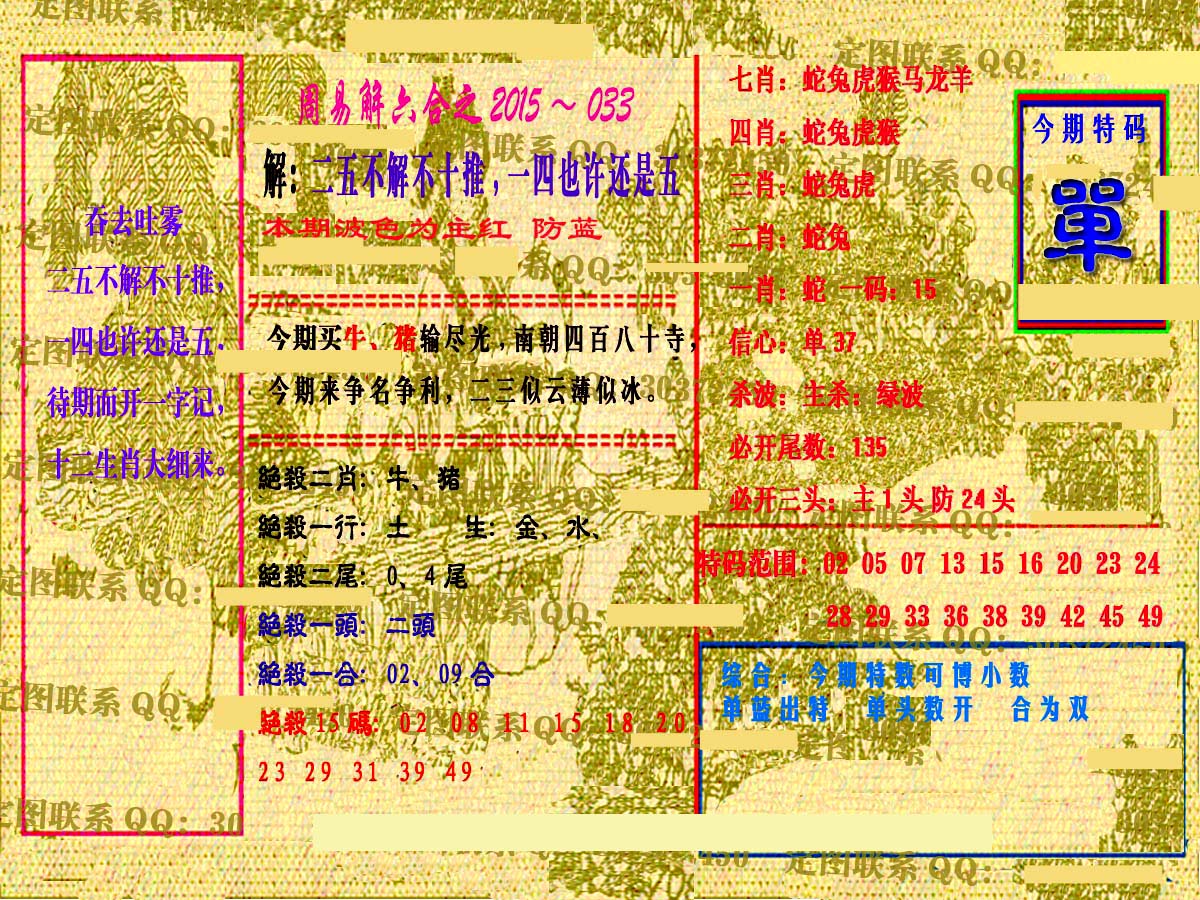 吞去吐雾
二五不解不十推，
一四也许还是五．
待期而开一字记，
十二生肖大细来。
周易解六合之 2015～033
解：二五不解不十推，一四也许还是五
本期波色为主红 防蓝
今期买牛、猪输尽光，南朝四百八十寺，
今期来争名争利，二三似云薄似冰。
絕殺二肖：牛、猪
絕殺一行：土 生：金、水、
絕殺二尾：0、4尾
絕殺一頭：二頭
絕殺一合：02、09合
絕殺15碼：02 08 11 15 18 20
23 29 31 39 49
七肖：蛇兔虎猴马龙羊
四肖：蛇兔虎猴
三肖：蛇兔虎
二肖：蛇兔
一肖：蛇 一码：15
信心：单37
杀波：主杀：绿波
必开尾数：135
必开三头：主1头防24头
今期特码
單
特码范围：02 05 07 13 15 16 20 23 24
28 29 33 36 38 39 42 45 49
综合：今期特数可博小数
单蓝出特 单头数开 合为双
定图联系QQ：